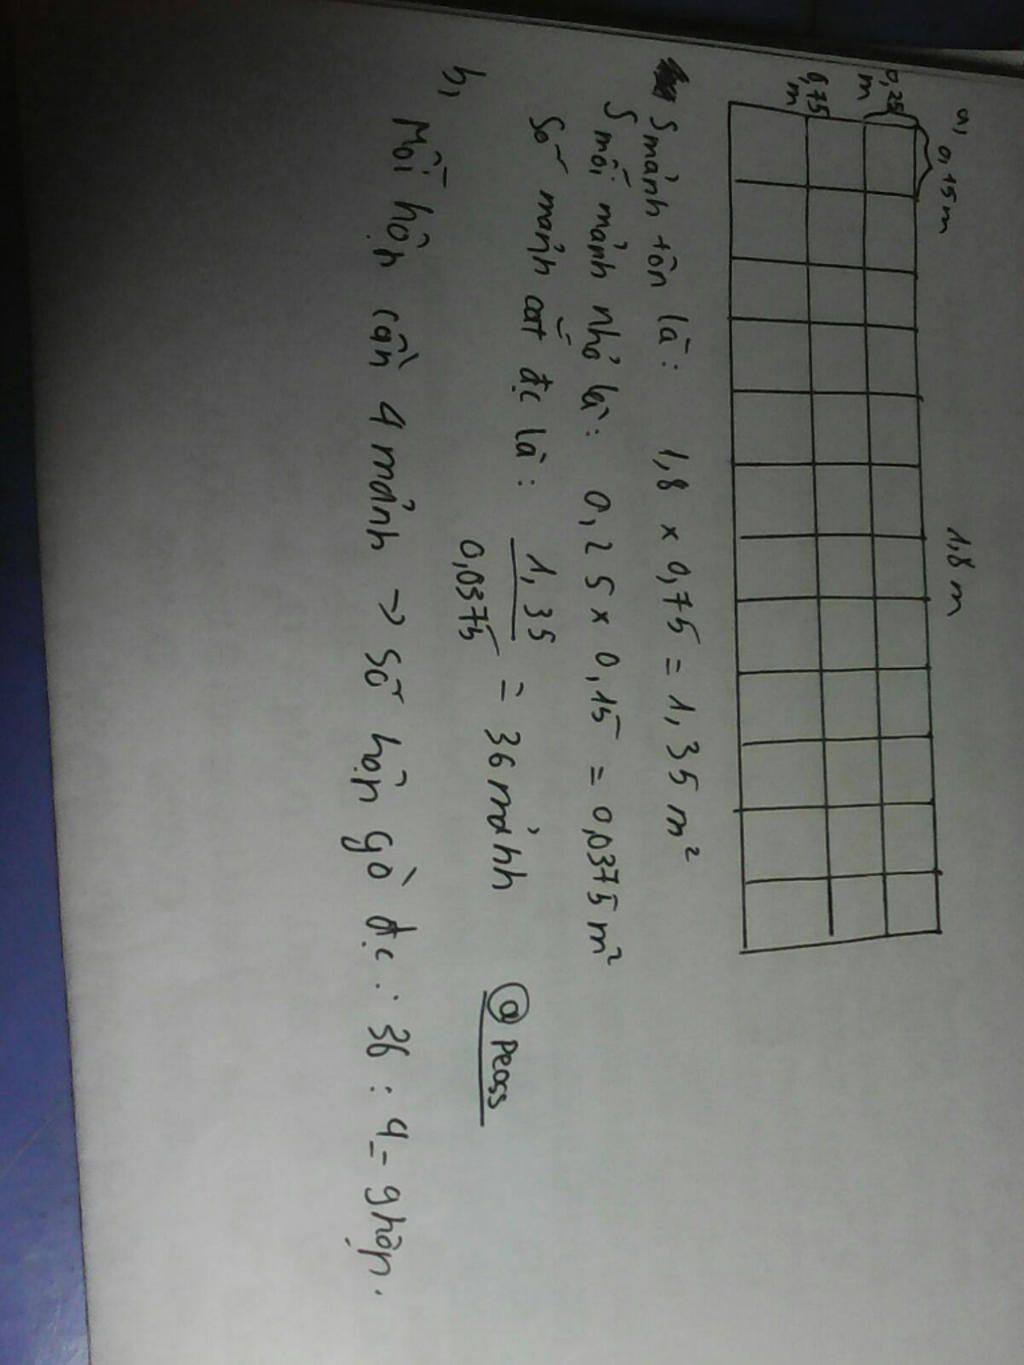 a, 0,15m
1,8 m
0,25
m
0,75
m
S mảnh tôn là: 1,8 x 0,75 = 1,35 m²
S mỗi mảnh nhỏ là: 0,25 x 0,15 = 0,0375 m²
Số mảnh cắt đc là: 1,35 / 0,0375 = 36 mảnh
@ Peoss
b, Mỗi hộp cần 4 mảnh → số hộp gò đc : 36 : 4 = 9 hộp.